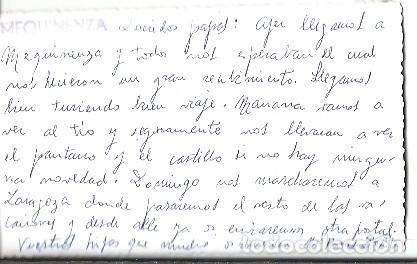 MEQUINENZA Queridos papas: Ayer llegamos a
Mequinenza y todos nos esperaban el cual
nos hicieron un gran recibimiento. Llegamos
bien tuviendo bien viaje. Mañana vamos a
ver al tio y seguramente nos llevaran a ver
el pantano y el castillo si no hay ningu-
na novedad. Domingo nos marcharemos a
Zaragoza donde pasaremos el resto de las va-
caciones y desde alli ya os enviaremos otra postal.
Vuestros hijos que mucho os
todocoleccion